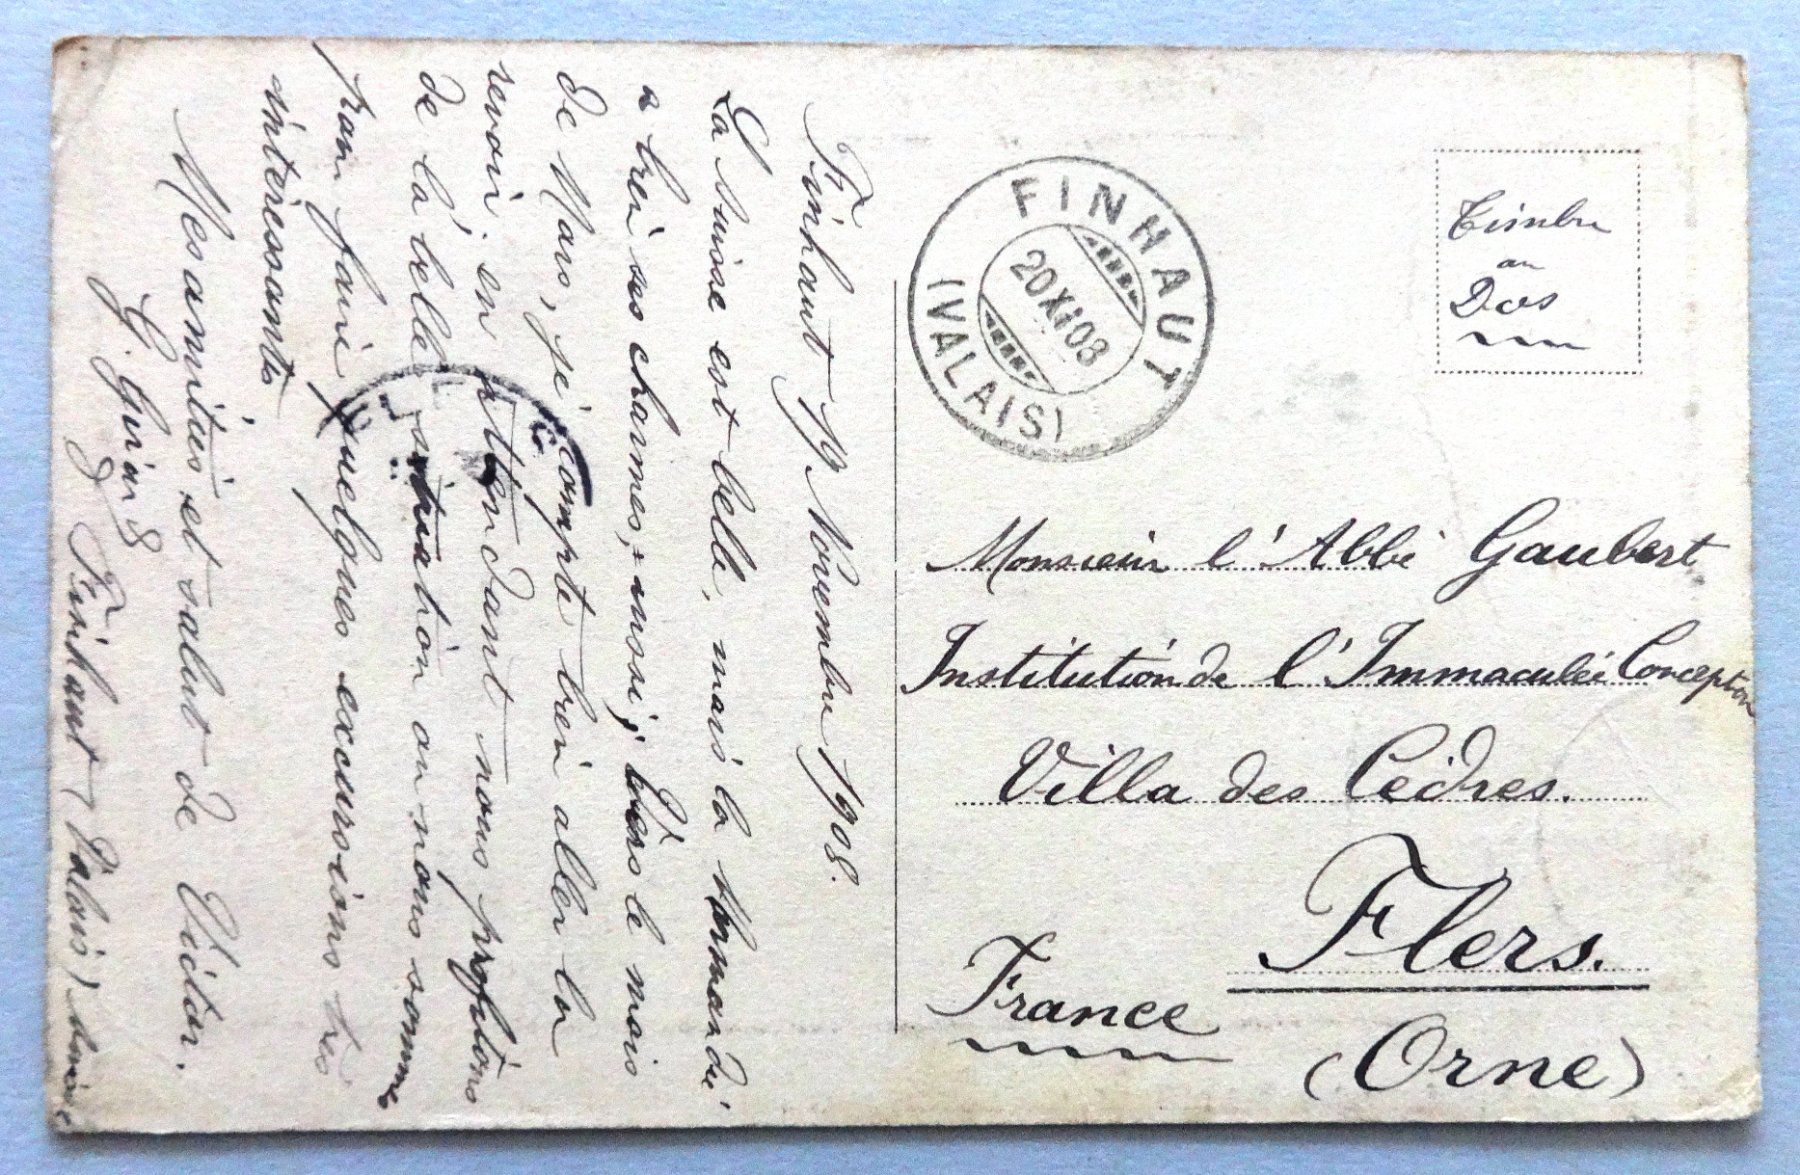 Finhaut 19 Novembre 1908.
La Suisse est belle, mais la Normandie
a bien ses charmes, aussi, vers le mois
de Mars, je compte bien aller la
revoir; en attendant nous profitons
de la belle situation où nous sommes
pour faire quelques excursions très
intéressantes
Mes amitiés et salut de Victor.
G.
Finhaut (Valais) Suisse
FINHAUT
20 XI 08
(VALAIS)
Timbre
au
Dos
Monsieur l'Abbé Gaubert
Institution de l'Immaculée Conception
Villa des Cèdres.
Flers.
France
(Orne)